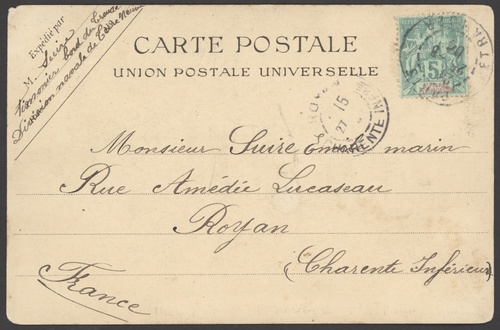 Expédié par
M. Suire
bord du
Division navale de Terre Neuve
CARTE POSTALE
UNION POSTALE UNIVERSELLE
5
ROYAN
15
27
CHARENTE INF
Monsieur Suire Emile marin
Rue Amédée Lucaseau
Royan
(Charente Inférieure)
France